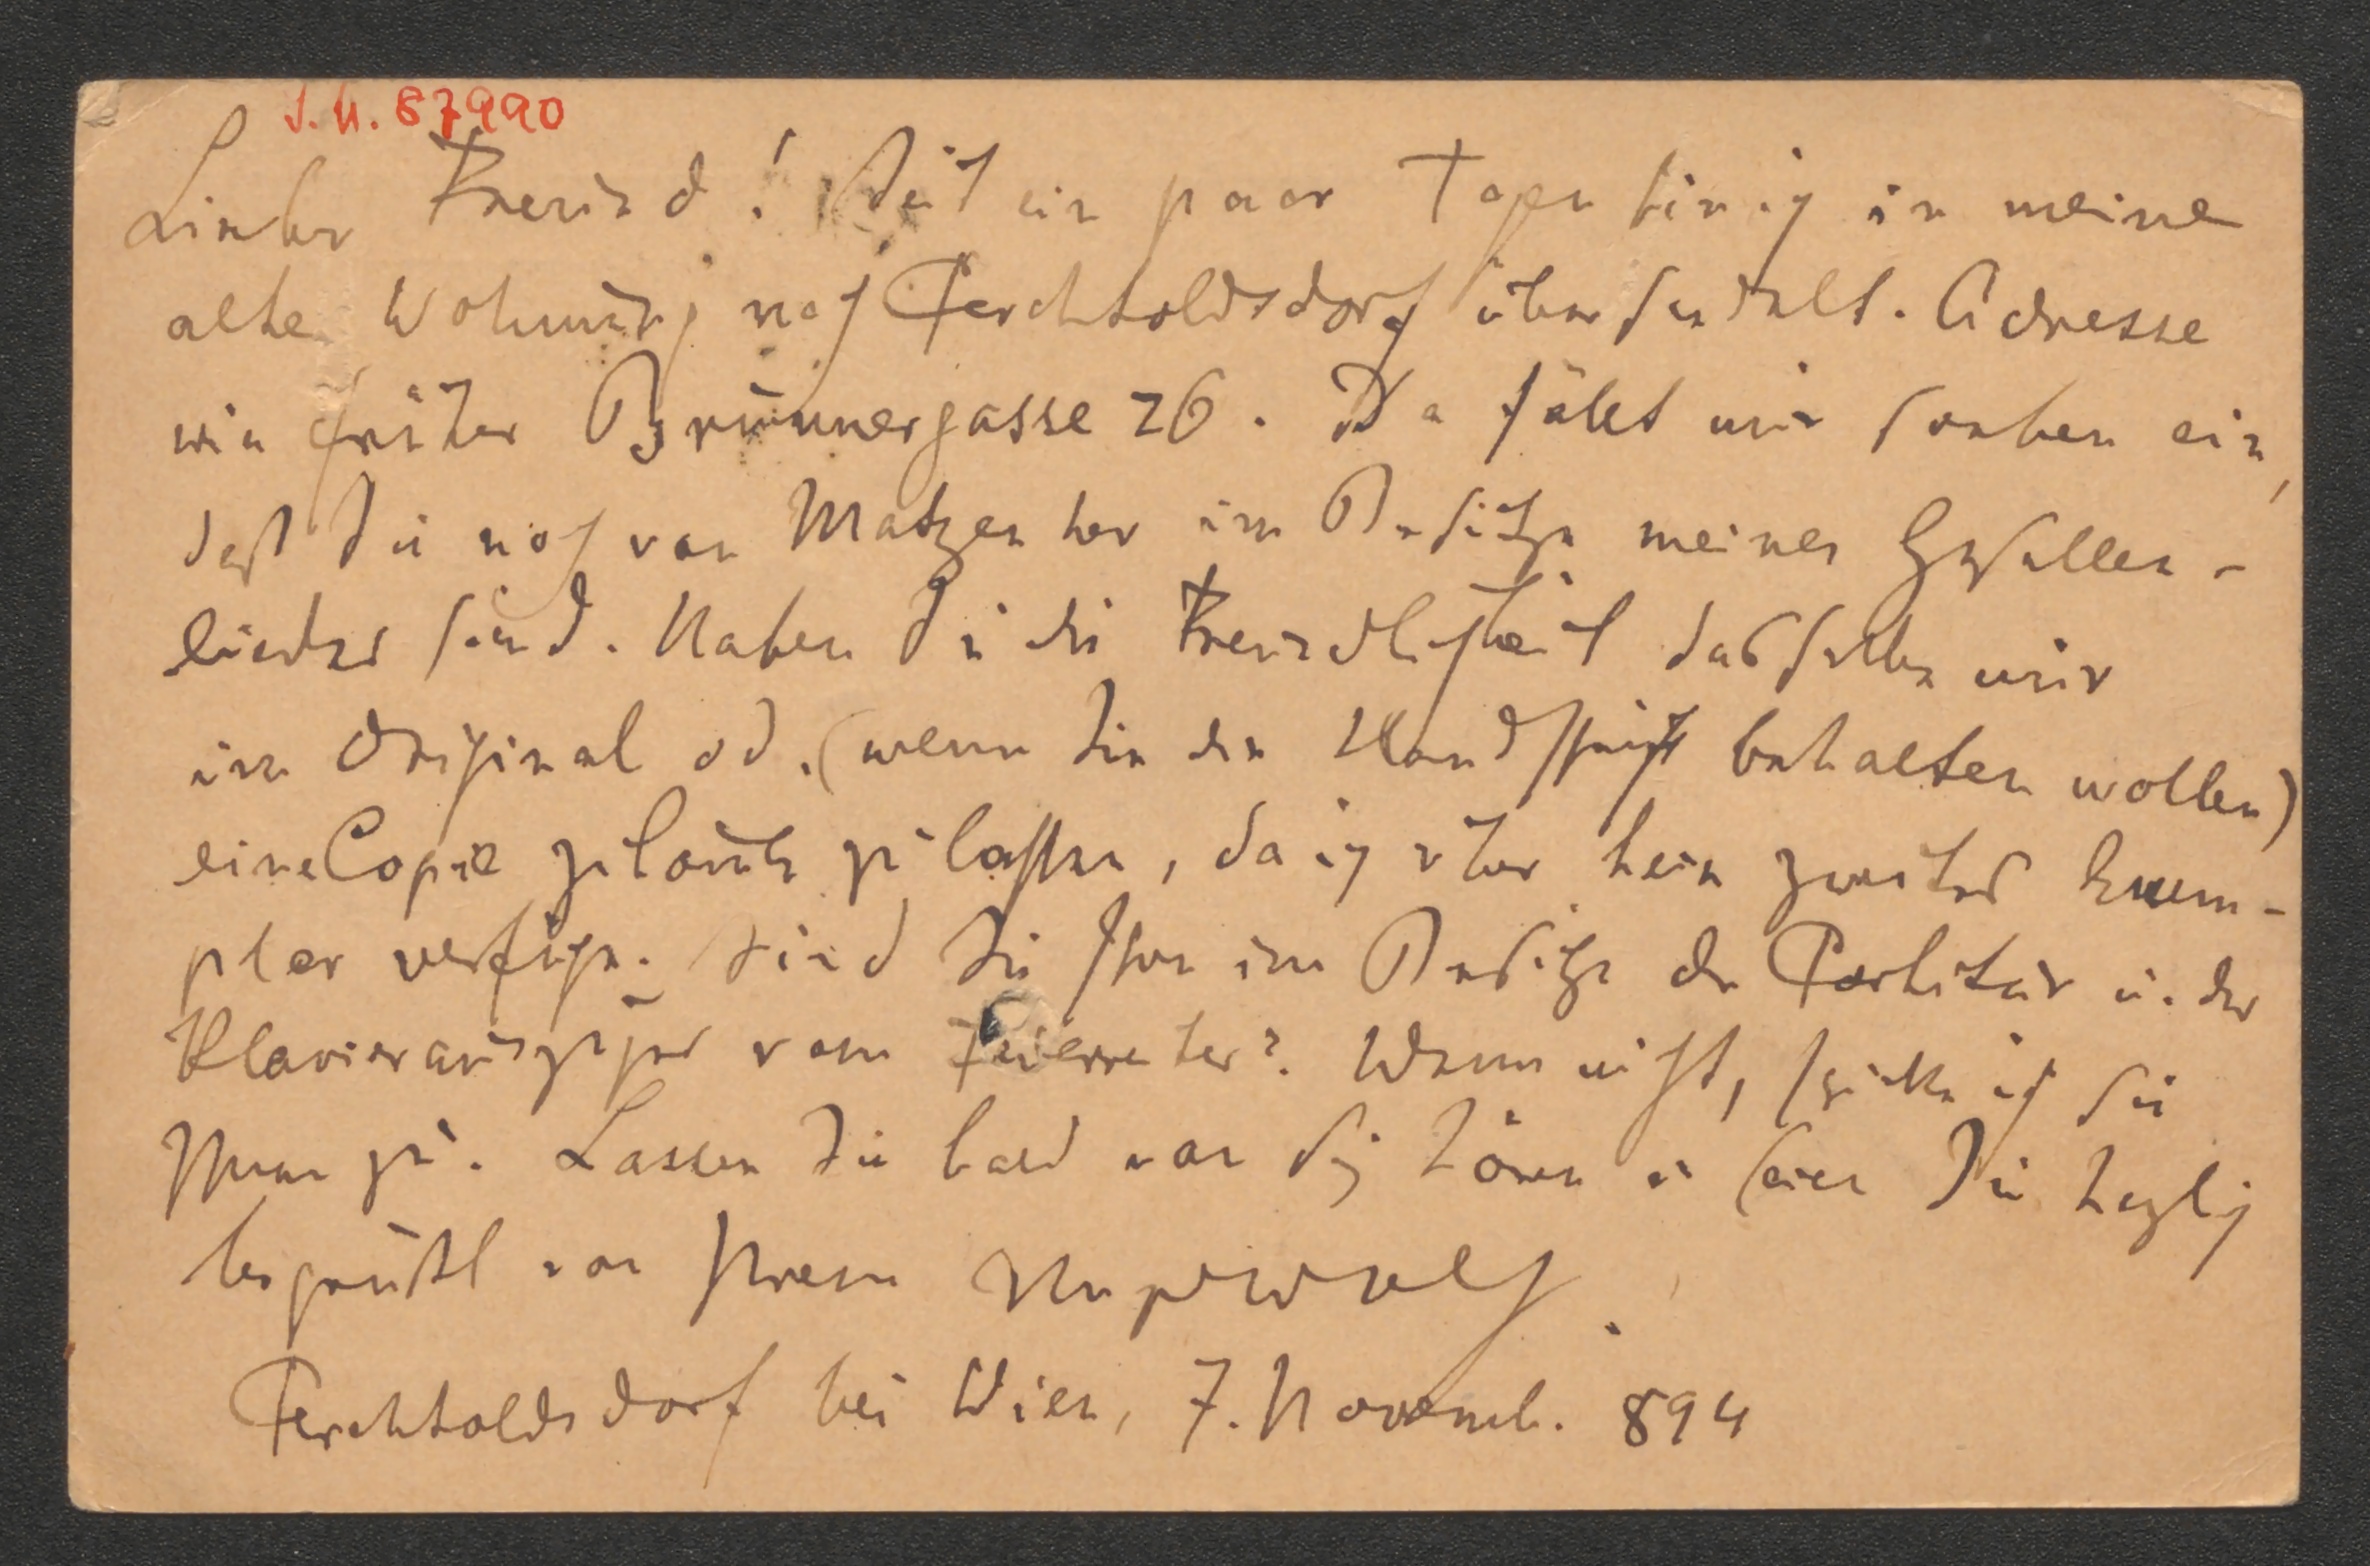 I.N. 87990
Lieber Freund! Seit ein paar Tagen bin ich in meine
alte Wohnung nach Perchtoldsdorf übersiedelt. Adresse
wie früher Brunnergasse 26. Da fällt mir soeben ein,
daß Sie noch von Matzen her im Besitze meines Gesellen-
liedes sind. Haben Sie die Freundlichkeit dasselbe mir
im Original od. (wenn Sie die Handschrift behalten wollen)
eine Copie zukommen zu lassen, da ich über kein zweites Exem-
plar verfüge. Sind Sie schon im Besitze der Partitur u. des
Klavierauszuges vom Feuerreiter? Wenn nicht, schicke ich sie
Ihnen zu. Lassen Sie bald von sich hören u seien Sie herzlich
begrüßt von Ihrem Hugo Wolf.
Perchtoldsdorf bei Wien, 7. Novemb. 894